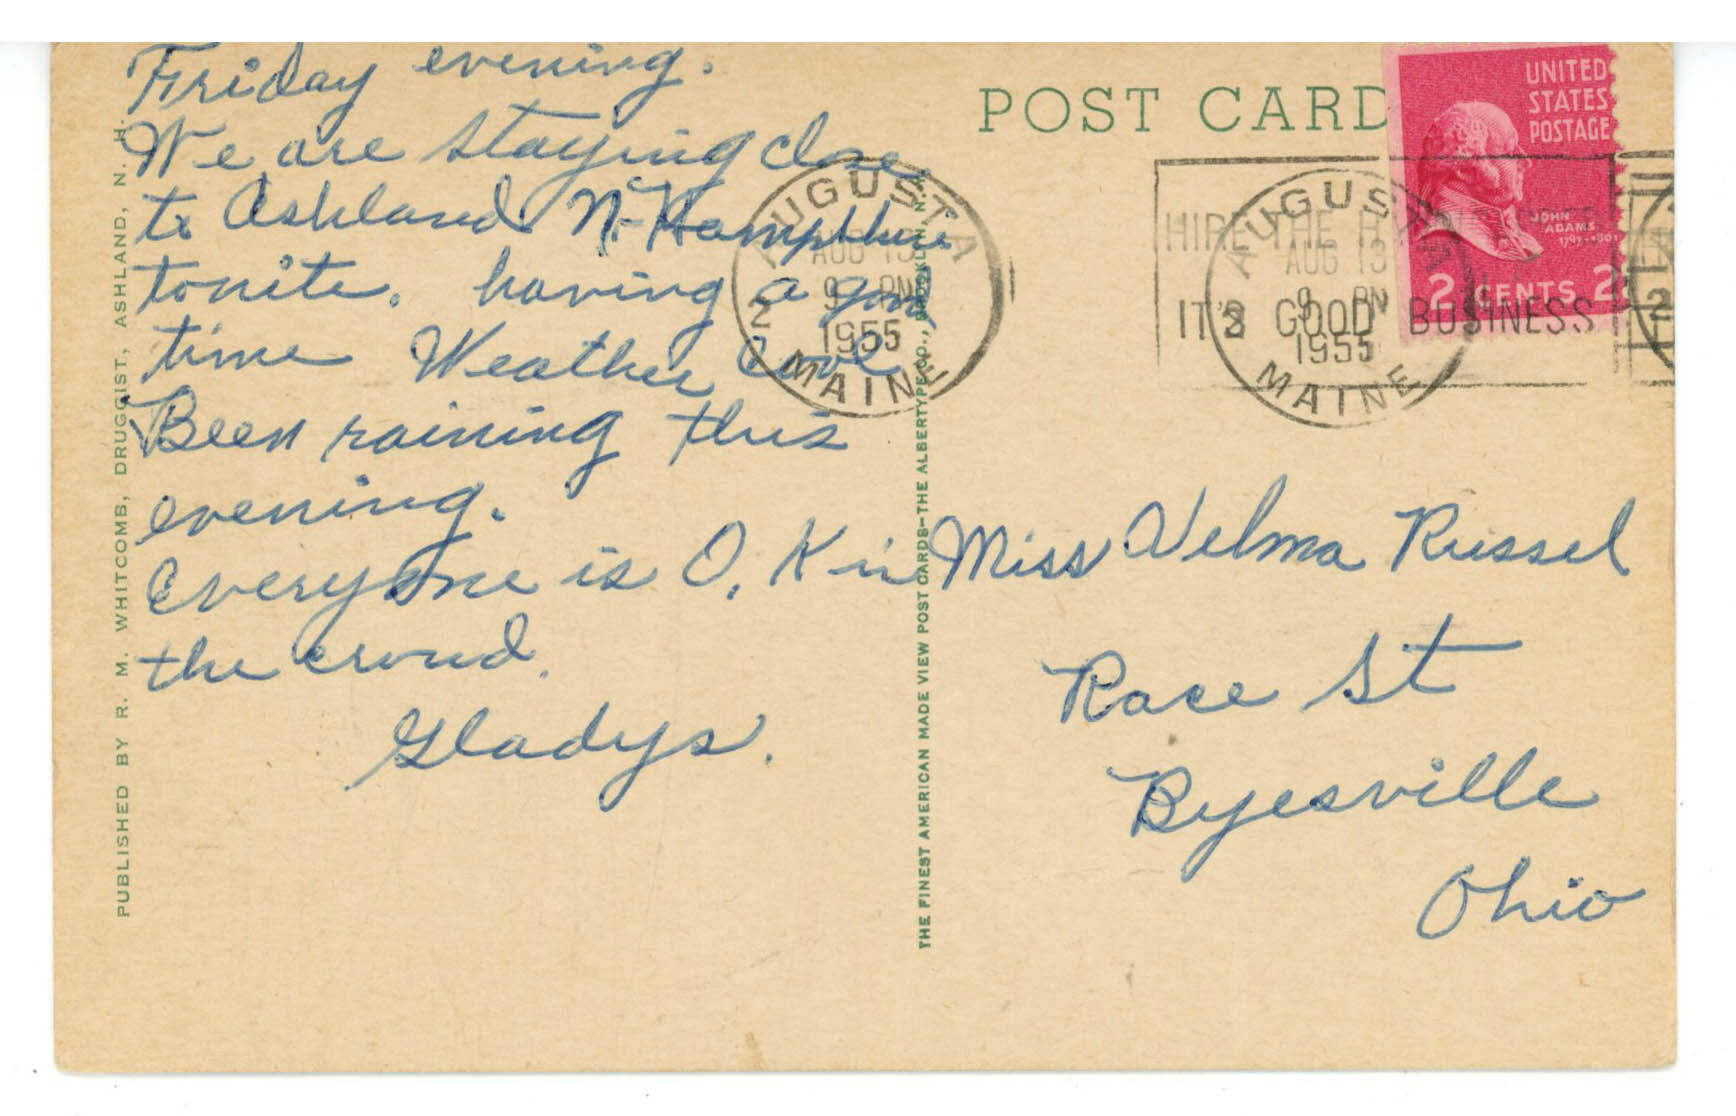 Friday evening.
We are staying close
to Ashland N. Hampshire
tonite. having a good
time Weather Cool
Been raining this
evening.
Everyone is O.K in
the crowd.
Gladys.
POST CARD
UNITED
STATES
POSTAGE
JOHN
ADAMS
1797-1801
2 CENTS 2
AUGUSTA
AUG 13
9 PM
1955
2
MAINE
HIRE THE
IT'S GOOD BUSINESS
AUGUSTA
AUG 13
9 PM
1955
2
MAINE
Miss Velma Russel
Race St
Byesville
Ohio
PUBLISHED BY R. M. WHITCOMB, DRUGGIST, ASHLAND, N. H.
THE FINEST AMERICAN MADE VIEW POST CARDS—THE ALBERTYPE CO., BROOKLYN, N.